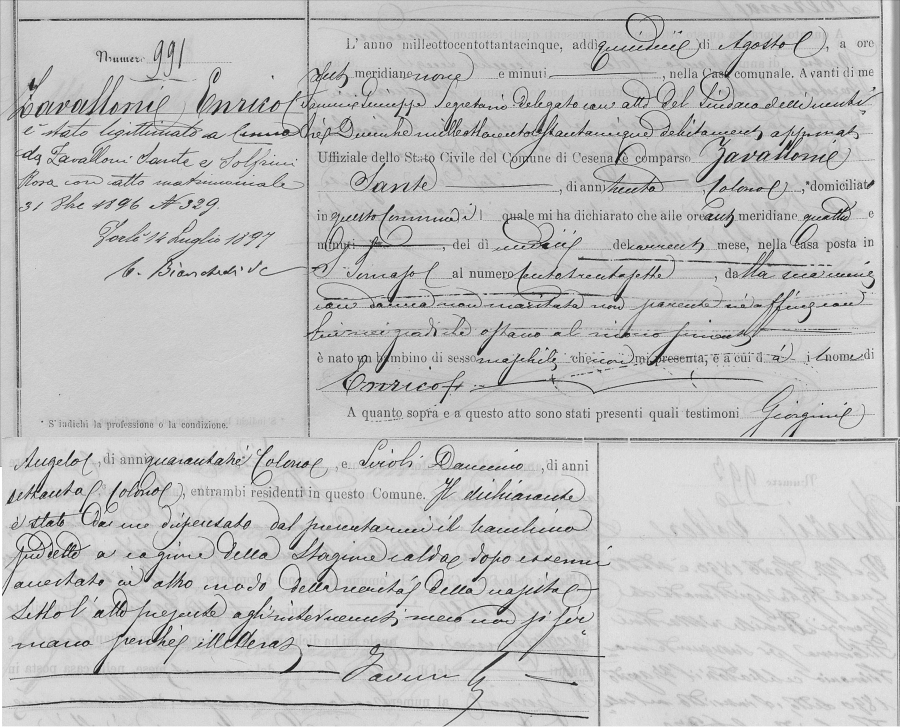 Numero 991
Zavalloni Enrico
è stato legittimato a Cesena
da Zavalloni Sante e Solfrini
Rosa con atto matrimoniale
31 Xbre 1896 N 329.
Forlì 14 Luglio 1897
* S'indichi la professione o la condizione.
L'anno milleottocentottantacinque, addì quindici di Agosto, a ore
anti meridiane nove e minuti, nella Casa comunale. Avanti di me
Giuseppe Segretario delegato con atto del Sindaco delli venti
milleottocentosettantacinque debitamente approvato
Uffiziale dello Stato Civile del Comune di Cesena è comparso Zavalloni
Sante, di anni trenta Colono, domiciliato
in questo Comune il quale mi ha dichiarato che alle ore anti meridiane quattro e
minuti, del dì undici del corrente mese, nella casa posta in
S. Tomaso al numero centotrentasette, dalla sua unione
con donna non maritata non parente nè affine con
lui nei gradi che ostano al
è nato un bambino di sesso maschile che non mi presenta, e a cui dà il nome di
Enrico
A quanto sopra e a questo atto sono stati presenti quali testimoni Giorgini
Angelo, di anni quarantatré Colono, e Severi Damiano, di anni
settanta Colono, entrambi residenti in questo Comune. Il dichiarante
è stato da me dispensato dal presentarmi il bambino
suddetto a cagione della Stagione calda dopo essermi
accertato in altro modo della verità della nascita
Letto l'atto presente agli intervenuti meco non si fir
mano perché illetterati